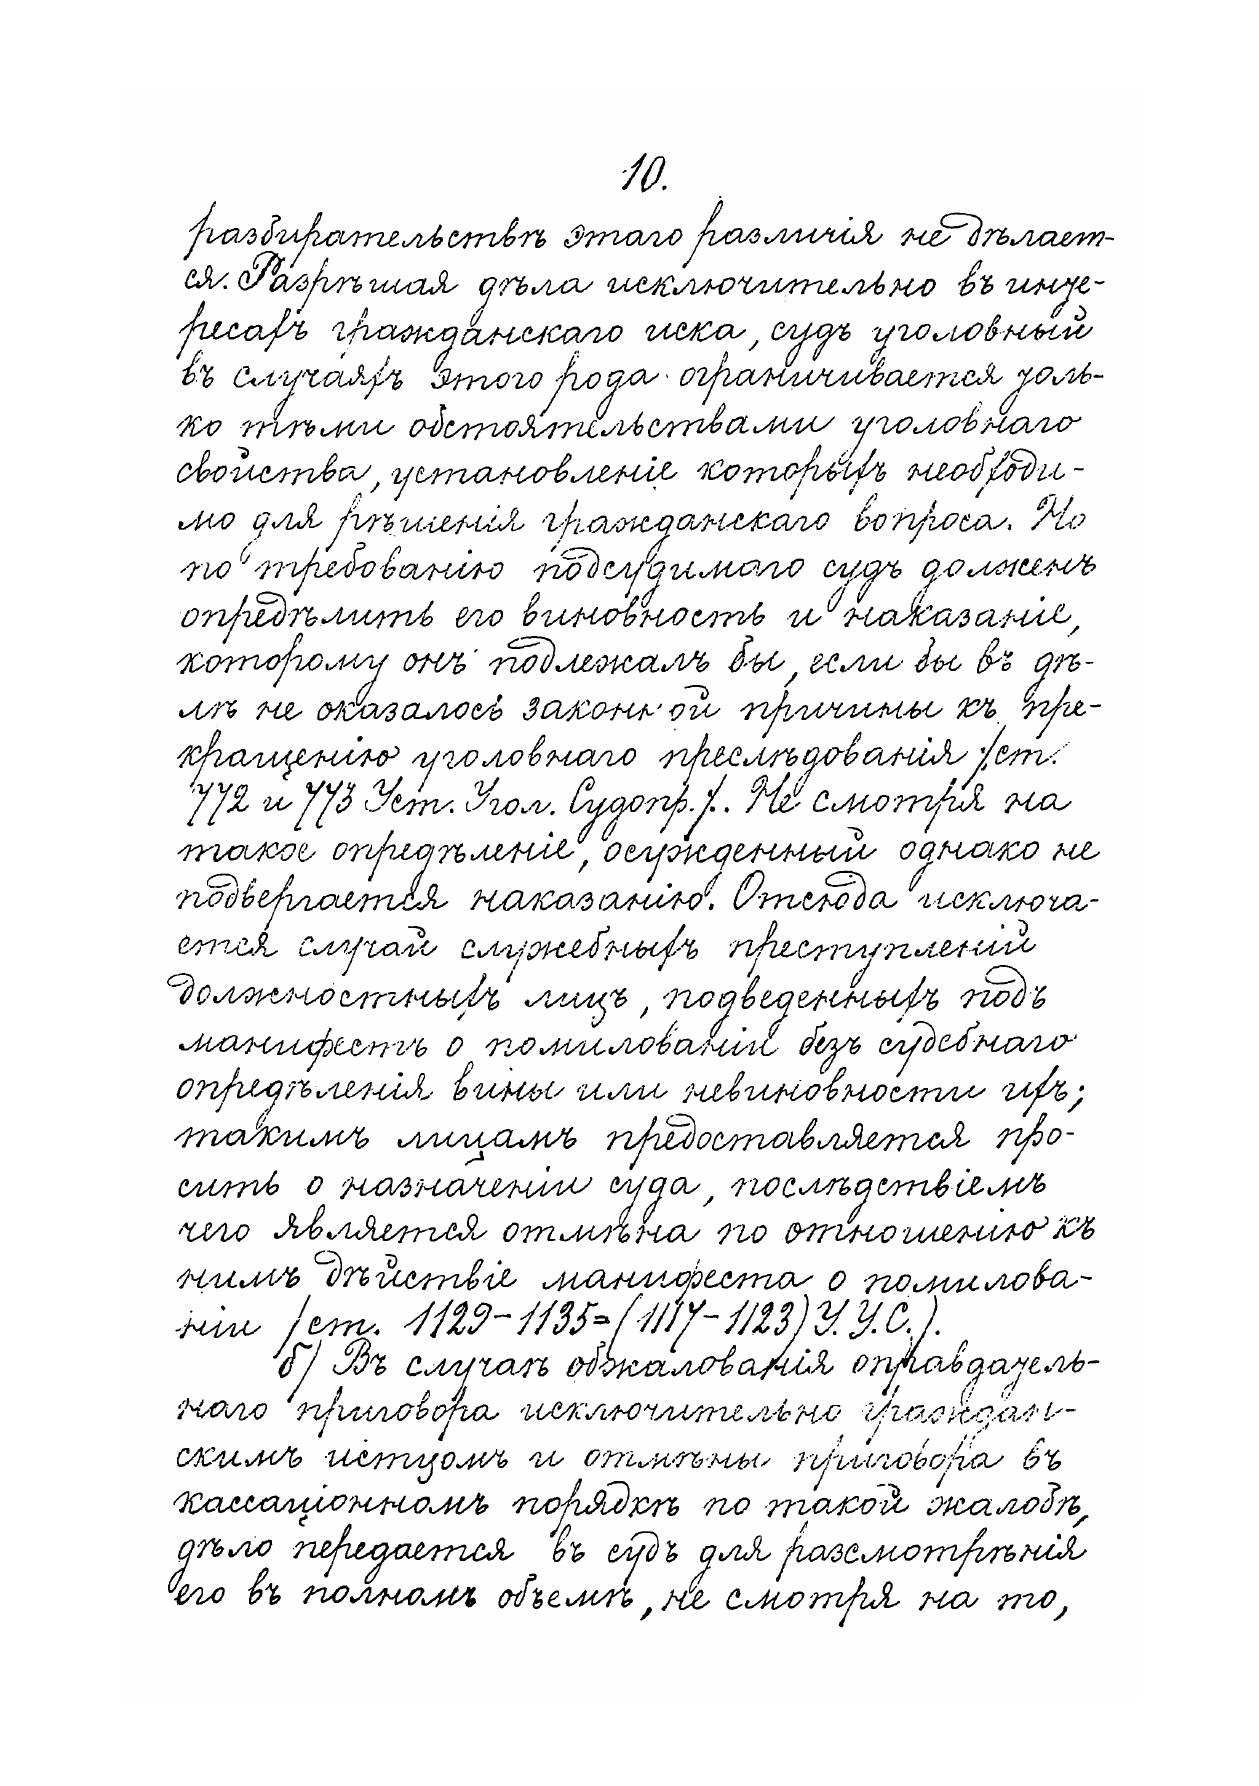 10.
разбирательствѣ этаго различія не дѣлает-
ся. Разрѣшая дѣла исключительно въ инте-
ресахъ гражданскаго иска, судъ уголовный
въ случаяхъ этого рода ограничивается толь-
ко тѣми обстоятельствами уголовнаго
свойства, установленіе которыхъ необходи-
мо для рѣшенія гражданскаго вопроса. Но
по требованію подсудимаго судъ долженъ
опредѣлить его виновность и наказаніе,
которому онъ подлежалъ бы, если бы въ дѣ-
лѣ не оказалось законной причины къ пре-
кращенію уголовнаго преслѣдованія /ст.
772 и 773 Уст. Угол. Судопр./. Не смотря на
такое опредѣленіе, осужденный однако не
подвергается наказанію. Отсюда исключа-
ется случай служебныхъ преступленій
должностныхъ лицъ, подведенныхъ подъ
манифестъ о помилованіи безъ судебнаго
опредѣленія вины или невиновности ихъ;
такимъ лицамъ предоставляется про-
сить о назначеніи суда, послѣдствіемъ
чего является отмѣна по отношенію къ
нимъ дѣйствіе манифеста о помилова-
ніи /ст. 1129-1135=(1117-1123) У. У. С.).
б) Въ случаѣ обжалованія оправдатель-
наго приговора исключительно граждан-
скимъ истцомъ и отмѣны приговора въ
кассаціонномъ порядкѣ по такой жалобѣ,
дѣло передается въ судъ для разсмотрѣнія
его въ полномъ объемѣ, не смотря на то,